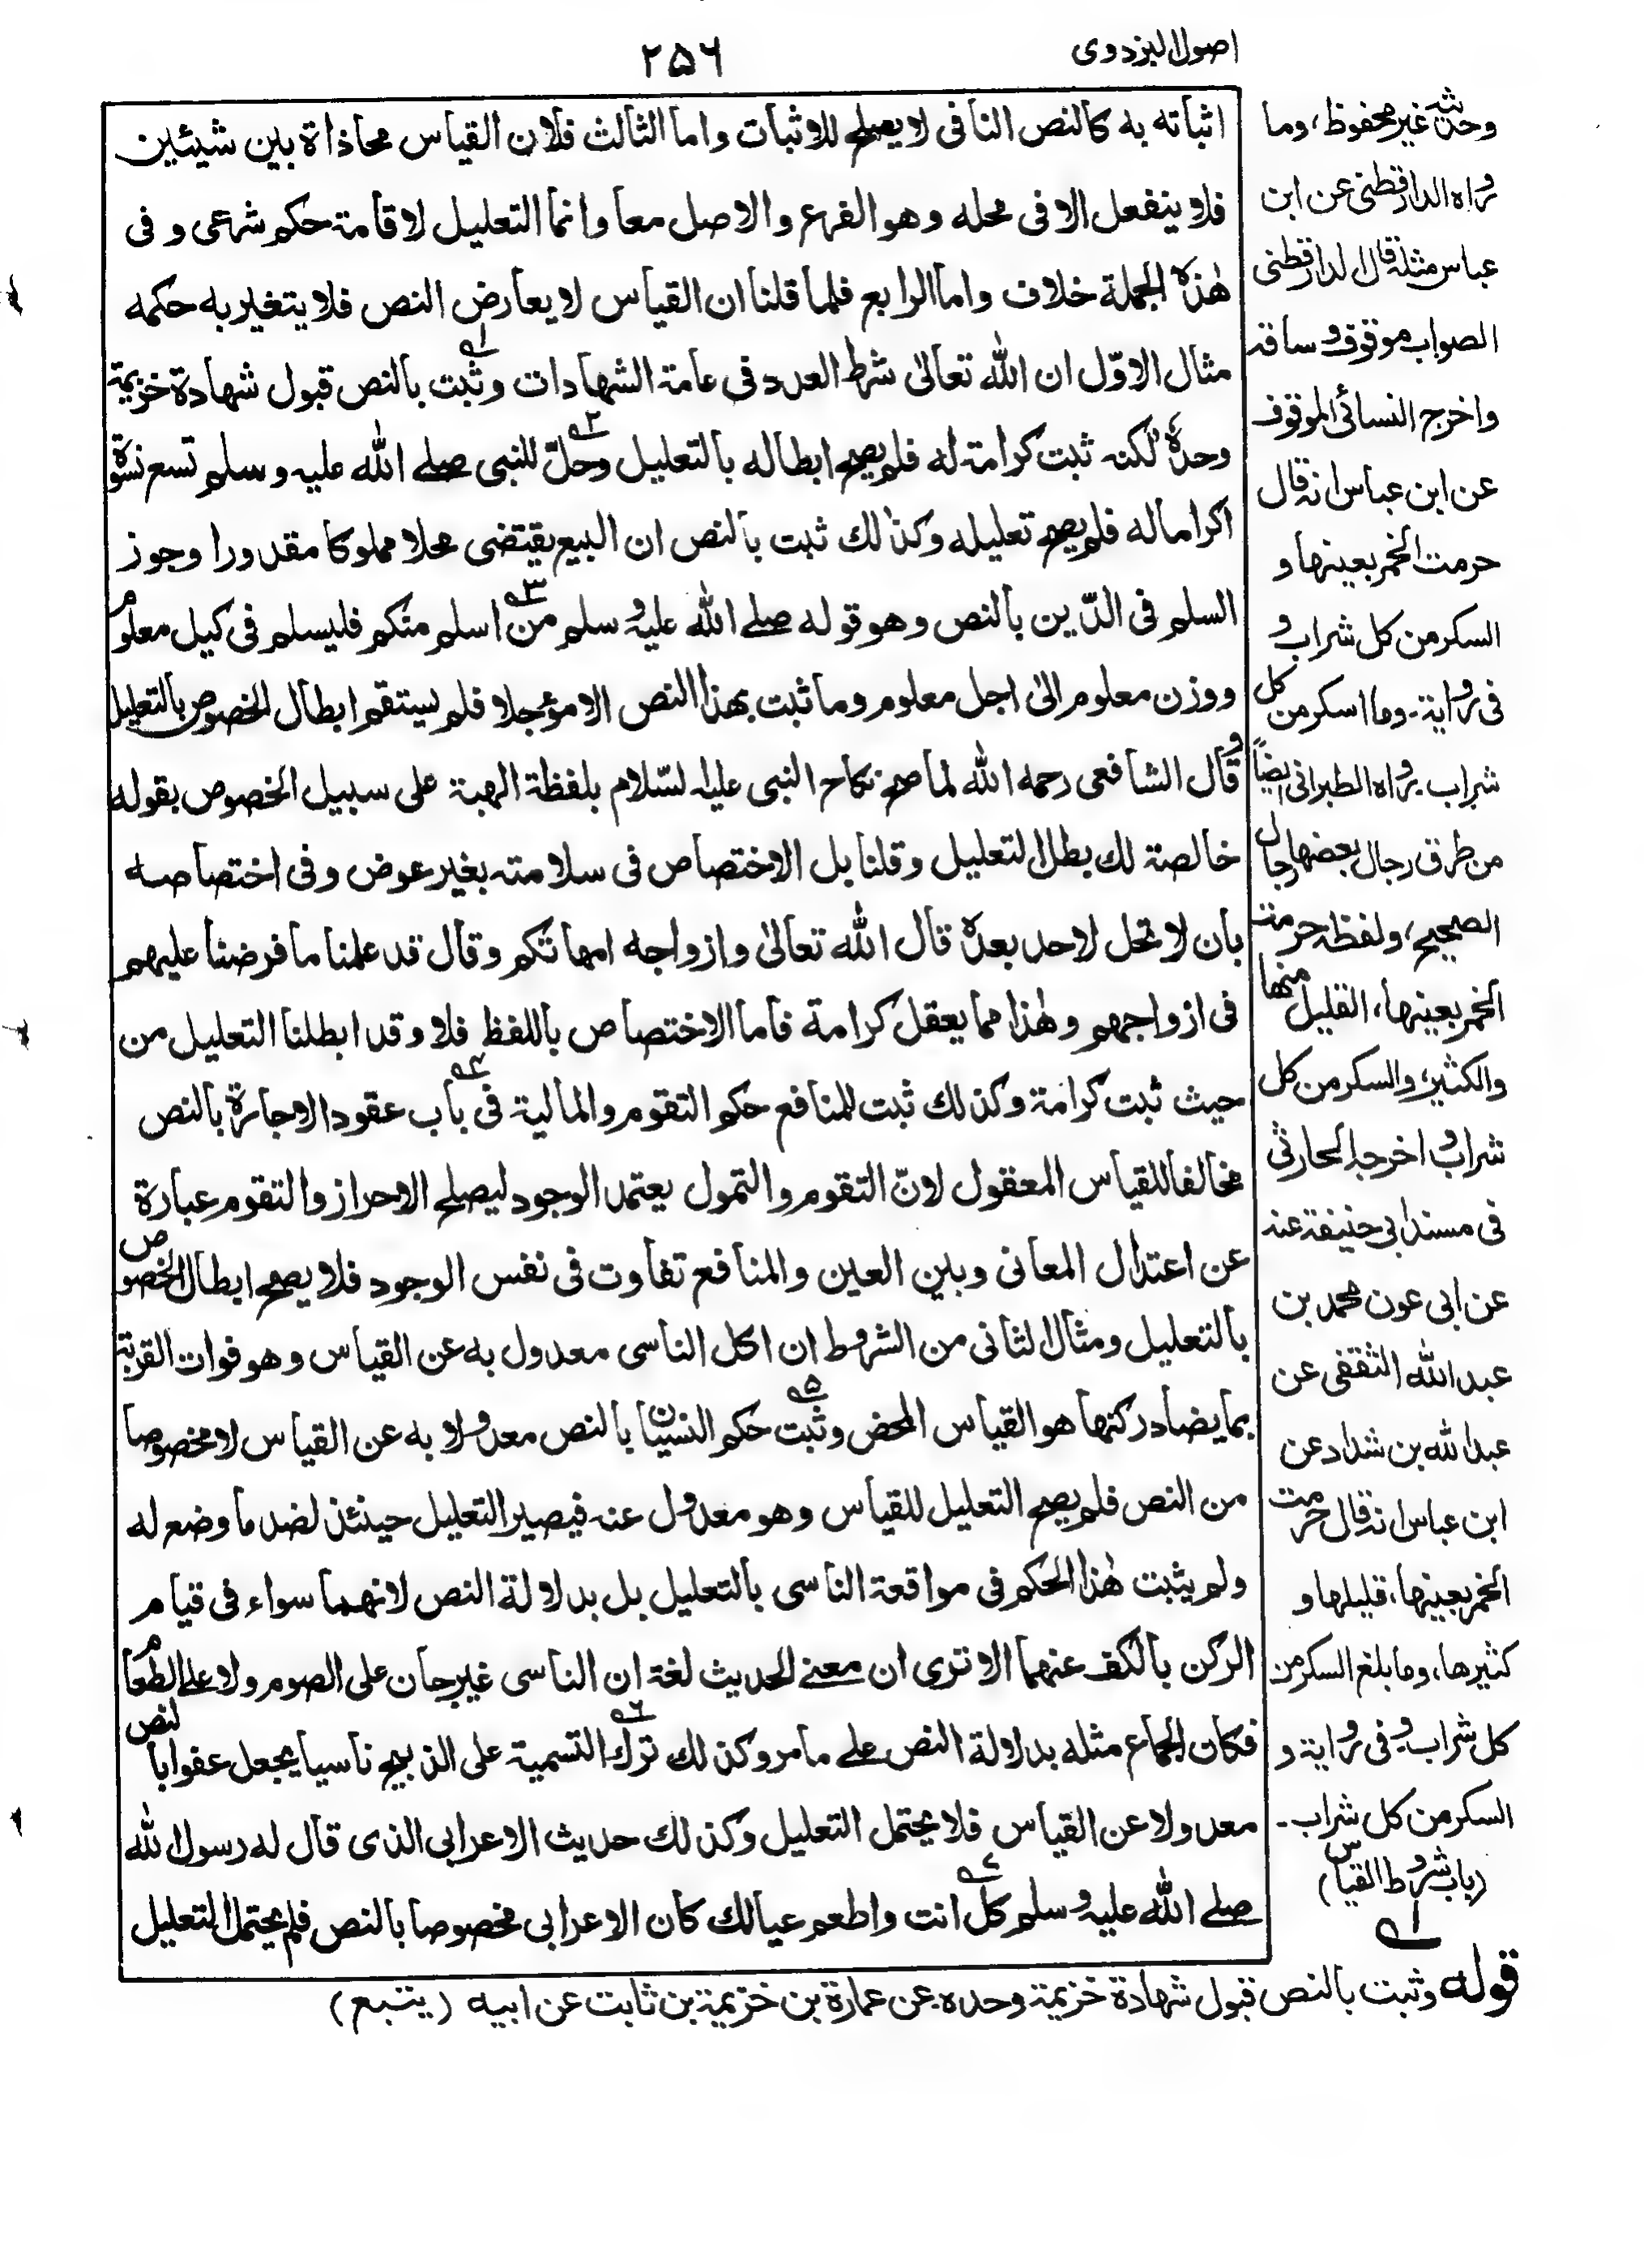 اصول البزدوى
٢٥٦
اثباته به كالنص النافى لا يصلح للاثبات واما الثالث فلان القياس محاذاة بين شيئين
فلا ينفعل الا فى محله وهو الفرع والاصل معا وانما التعليل لاقامة حكم شرعى و فى
هٰذه الجملة خلاف واما الرابع فلما قلنا ان القياس لا يعارض النص فلا يتغير به حكمه
مثال الاوّل ان الله تعالىٰ شرط العدد فى عامة الشهادات وثبت بالنص قبول شهادة خزيمة
وحدهٗ لكنه ثبت كرامة له فلم يصح ابطاله بالتعليل وحلّ للنبى صلے الله عليه وسلم تسع نسوة
اكراما له فلم يصح تعليله وكذٰلك ثبت بالنص ان البيع يقتضى محلا مملوكا مقدورا وجوز
السلم فى الدّين بالنص وهو قوله صلے الله عليه وسلم من اسلم منكم فليسلم فى كيل معلوم
ووزن معلوم الىٰ اجل معلوم وما ثبت بهذا النص الا مؤجلا فلم يستقم ابطال الخصوص بالتعليل
وقال الشافعى رحمه الله لما صح نكاح النبى عليه السّلام بلفظة الهبة على سبيل الخصوص بقوله
خالصة لك بطل التعليل وقلنا بل الاختصاص فى سلامته بغير عوض وفى اختصاصه
بان لا تحل لاحد بعده قال الله تعالىٰ وازواجه امهاتكم وقال قد علمنا ما فرضنا عليهم
فى ازواجهم وهٰذا مما يعقل كرامة فاما الاختصاص باللفظ فلا وقد ابطلنا التعليل من
حيث ثبت كرامة وكذلك ثبت للمنافع حكم التقوم والمالية فى باب عقود الاجارة بالنص
مخالفا للقياس المعقول لانّ التقوم والتمول يعتمد الوجود ليصلح الاحراز والتقوم عبارة
عن اعتدال المعانى وبين العين والمنافع تفاوت فى نفس الوجود فلا يصح ابطال الخصوص
بالتعليل ومثال الثانى من الشروط ان اكل الناسى معدول به عن القياس وهو فوات القربة
بما يضاد ركنها هو القياس المحض وثبت حكم النسيان بالنص معدولا به عن القياس لا مخصوصا
من النص فلم يصح التعليل للقياس وهو معدول عنه فيصير التعليل حينئذ لضد ما وضع له
ولم يثبت هٰذا الحكم فى مواقعة الناسى بالتعليل بل بدلالة النص لانهما سواء فى قيام
الركن بالكف عنهما الا ترى ان معنے الحديث لغة ان الناسى غير جان على الصوم ولا علے الطعام
فكان الجماع مثله بدلالة النص علے ما مر وكذلك ترك التسمية على الذبيح ناسيا يجعل عفوا بالنص
معدولا عن القياس فلا يحتمل التعليل وكذلك حديث الاعرابى الذى قال له رسول الله
صلے الله عليه وسلم كل انت واطعم عيالك كان الاعرابى مخصوصا بالنص فلم يحتمل التعليل
وحديثه غير محفوظ، وما
رواه الدارقطنى عن ابن
عباس مثله قال الدارقطنى
الصواب موقوف وساقه
واخرج النسائى الموقوف
عن ابن عباس انه قال
حرمت الخمر بعينها و
السكر من كل شراب و
فى رواية ـ وما اسكر من كل
شراب ـ ورواه الطبرانى ايضاً
من طرق رجال بعضها رجال
الصحيح، ولفظه حرمت
الخمر بعينها، القليل منها
والكثير، والسكر من كل
شراب واخرجه الحارثى
فى مسند ابى حنيفة عنه
عن ابى عون محمد بن
عبد الله الثقفى عن
عبد الله بن شداد عن
ابن عباس انه قال حرمت
الخمر بعينها، قليلها و
كثيرها، وما بلغ السكر من
كل شراب وفى رواية و
السكر من كل شراب ـ
(باب شروط القياس)
١
قوله وثبت بالنص قبول شهادة خزيمة وحده ـ عن عمارة بن خزيمة بن ثابت عن ابيه (يتبع)